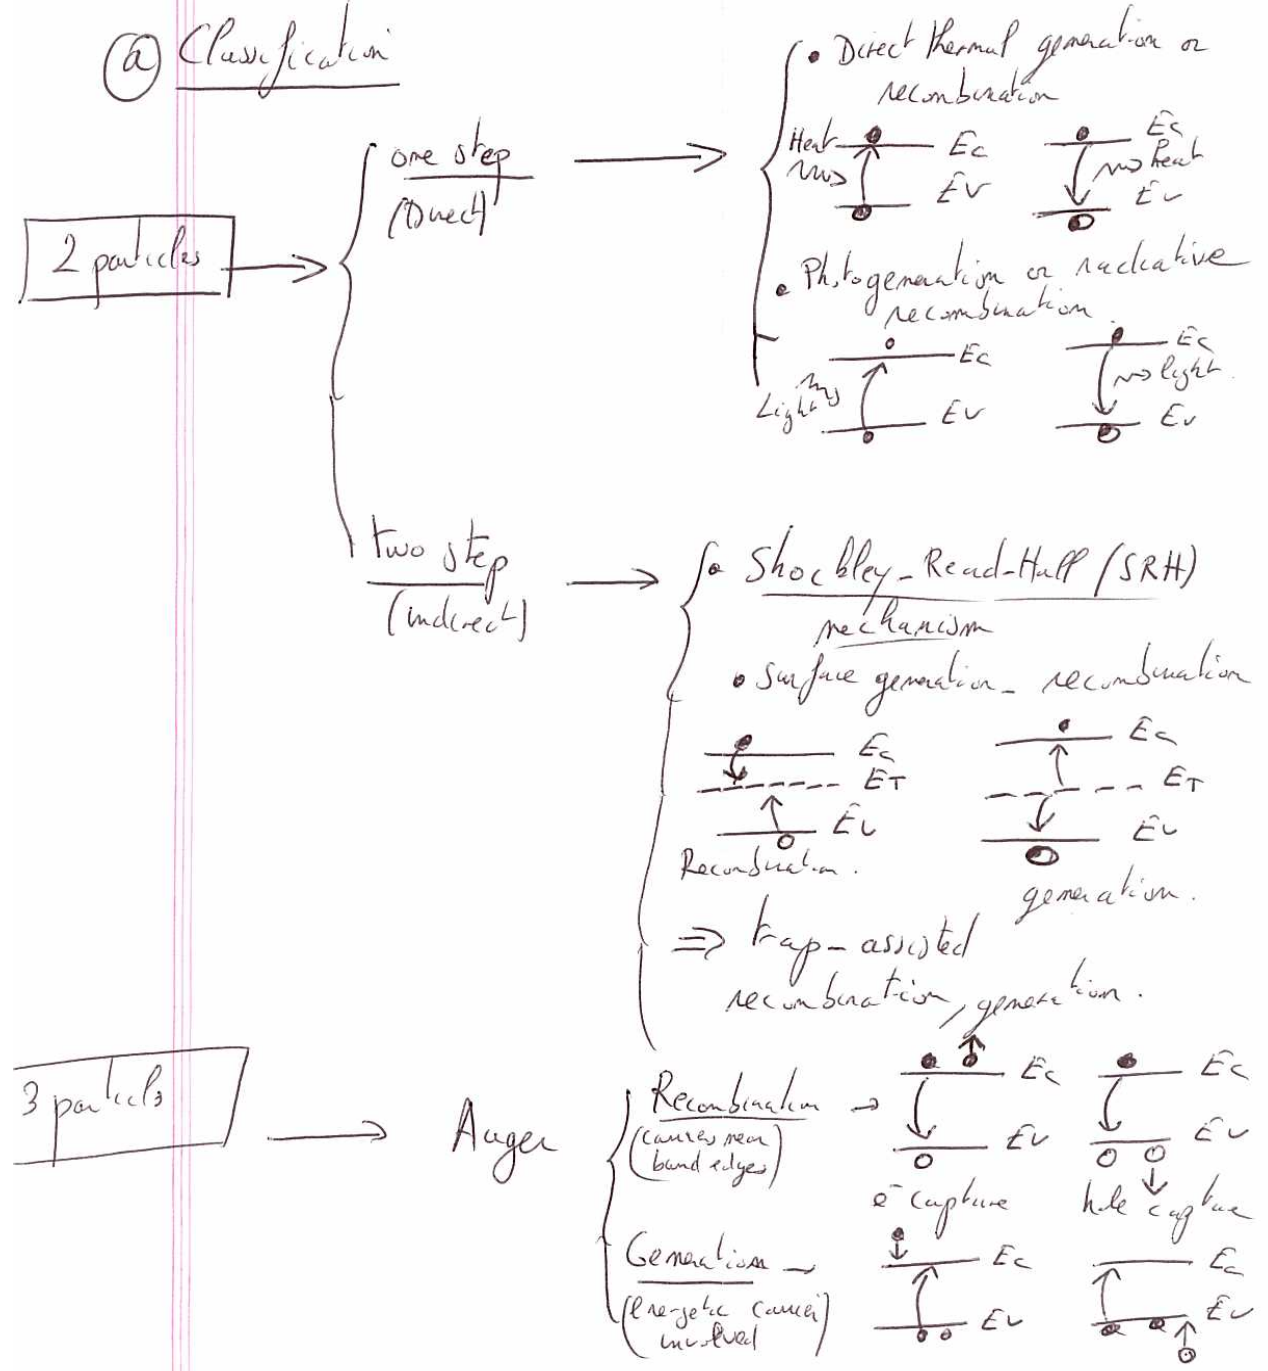 (a) Classification
2 particles
one step
(Direct)
• Direct thermal generation or
recombination
Heat
Ec
Ev
Ec
heat
Ev
• Photogeneration or radiative
recombination
Ec
Light
Ev
Ec
light
Ev
two step
(indirect)
• Shockley-Read-Hall (SRH)
mechanism
• Surface generation-recombination
Ec
ET
Ev
Recombination.
Ec
ET
Ev
generation.
⇒ trap-assisted
recombination, generation.
3 particles
Auger
Recombination →
(carriers near
band edges)
Ec
Ev
e⁻ capture
Ec
Ev
hole capture
Generation →
(energetic carrier
involved)
Ec
Ev
Ec
Ev